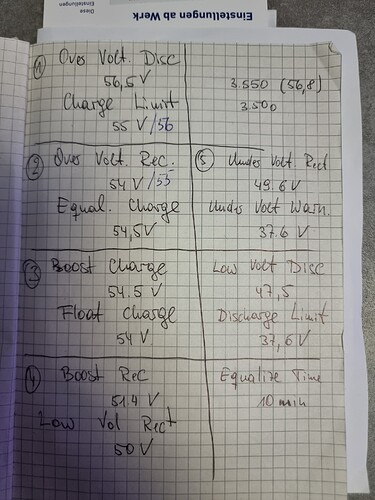 Einstellungen ab Werk
Diese
Einstellungen
1 Over Volt. Disc
56,5 V
Charge Limit
55 V/56
3.550 (56,8)
3.500
2 Over Volt. Rec.
54 V/55
Equal. Charge
54,5V
5 Under Volt. Rect
49.6 V
Under Volt Warn.
37.6 V
3 Boost Charge
54.5 V
Float Charge
54 V
Low Volt Disc
47,5
Discharge Limit
37,6 V
4 Boost Rec
51.4 V
Low Vol Rect
50 V
Equalize Time
10 min